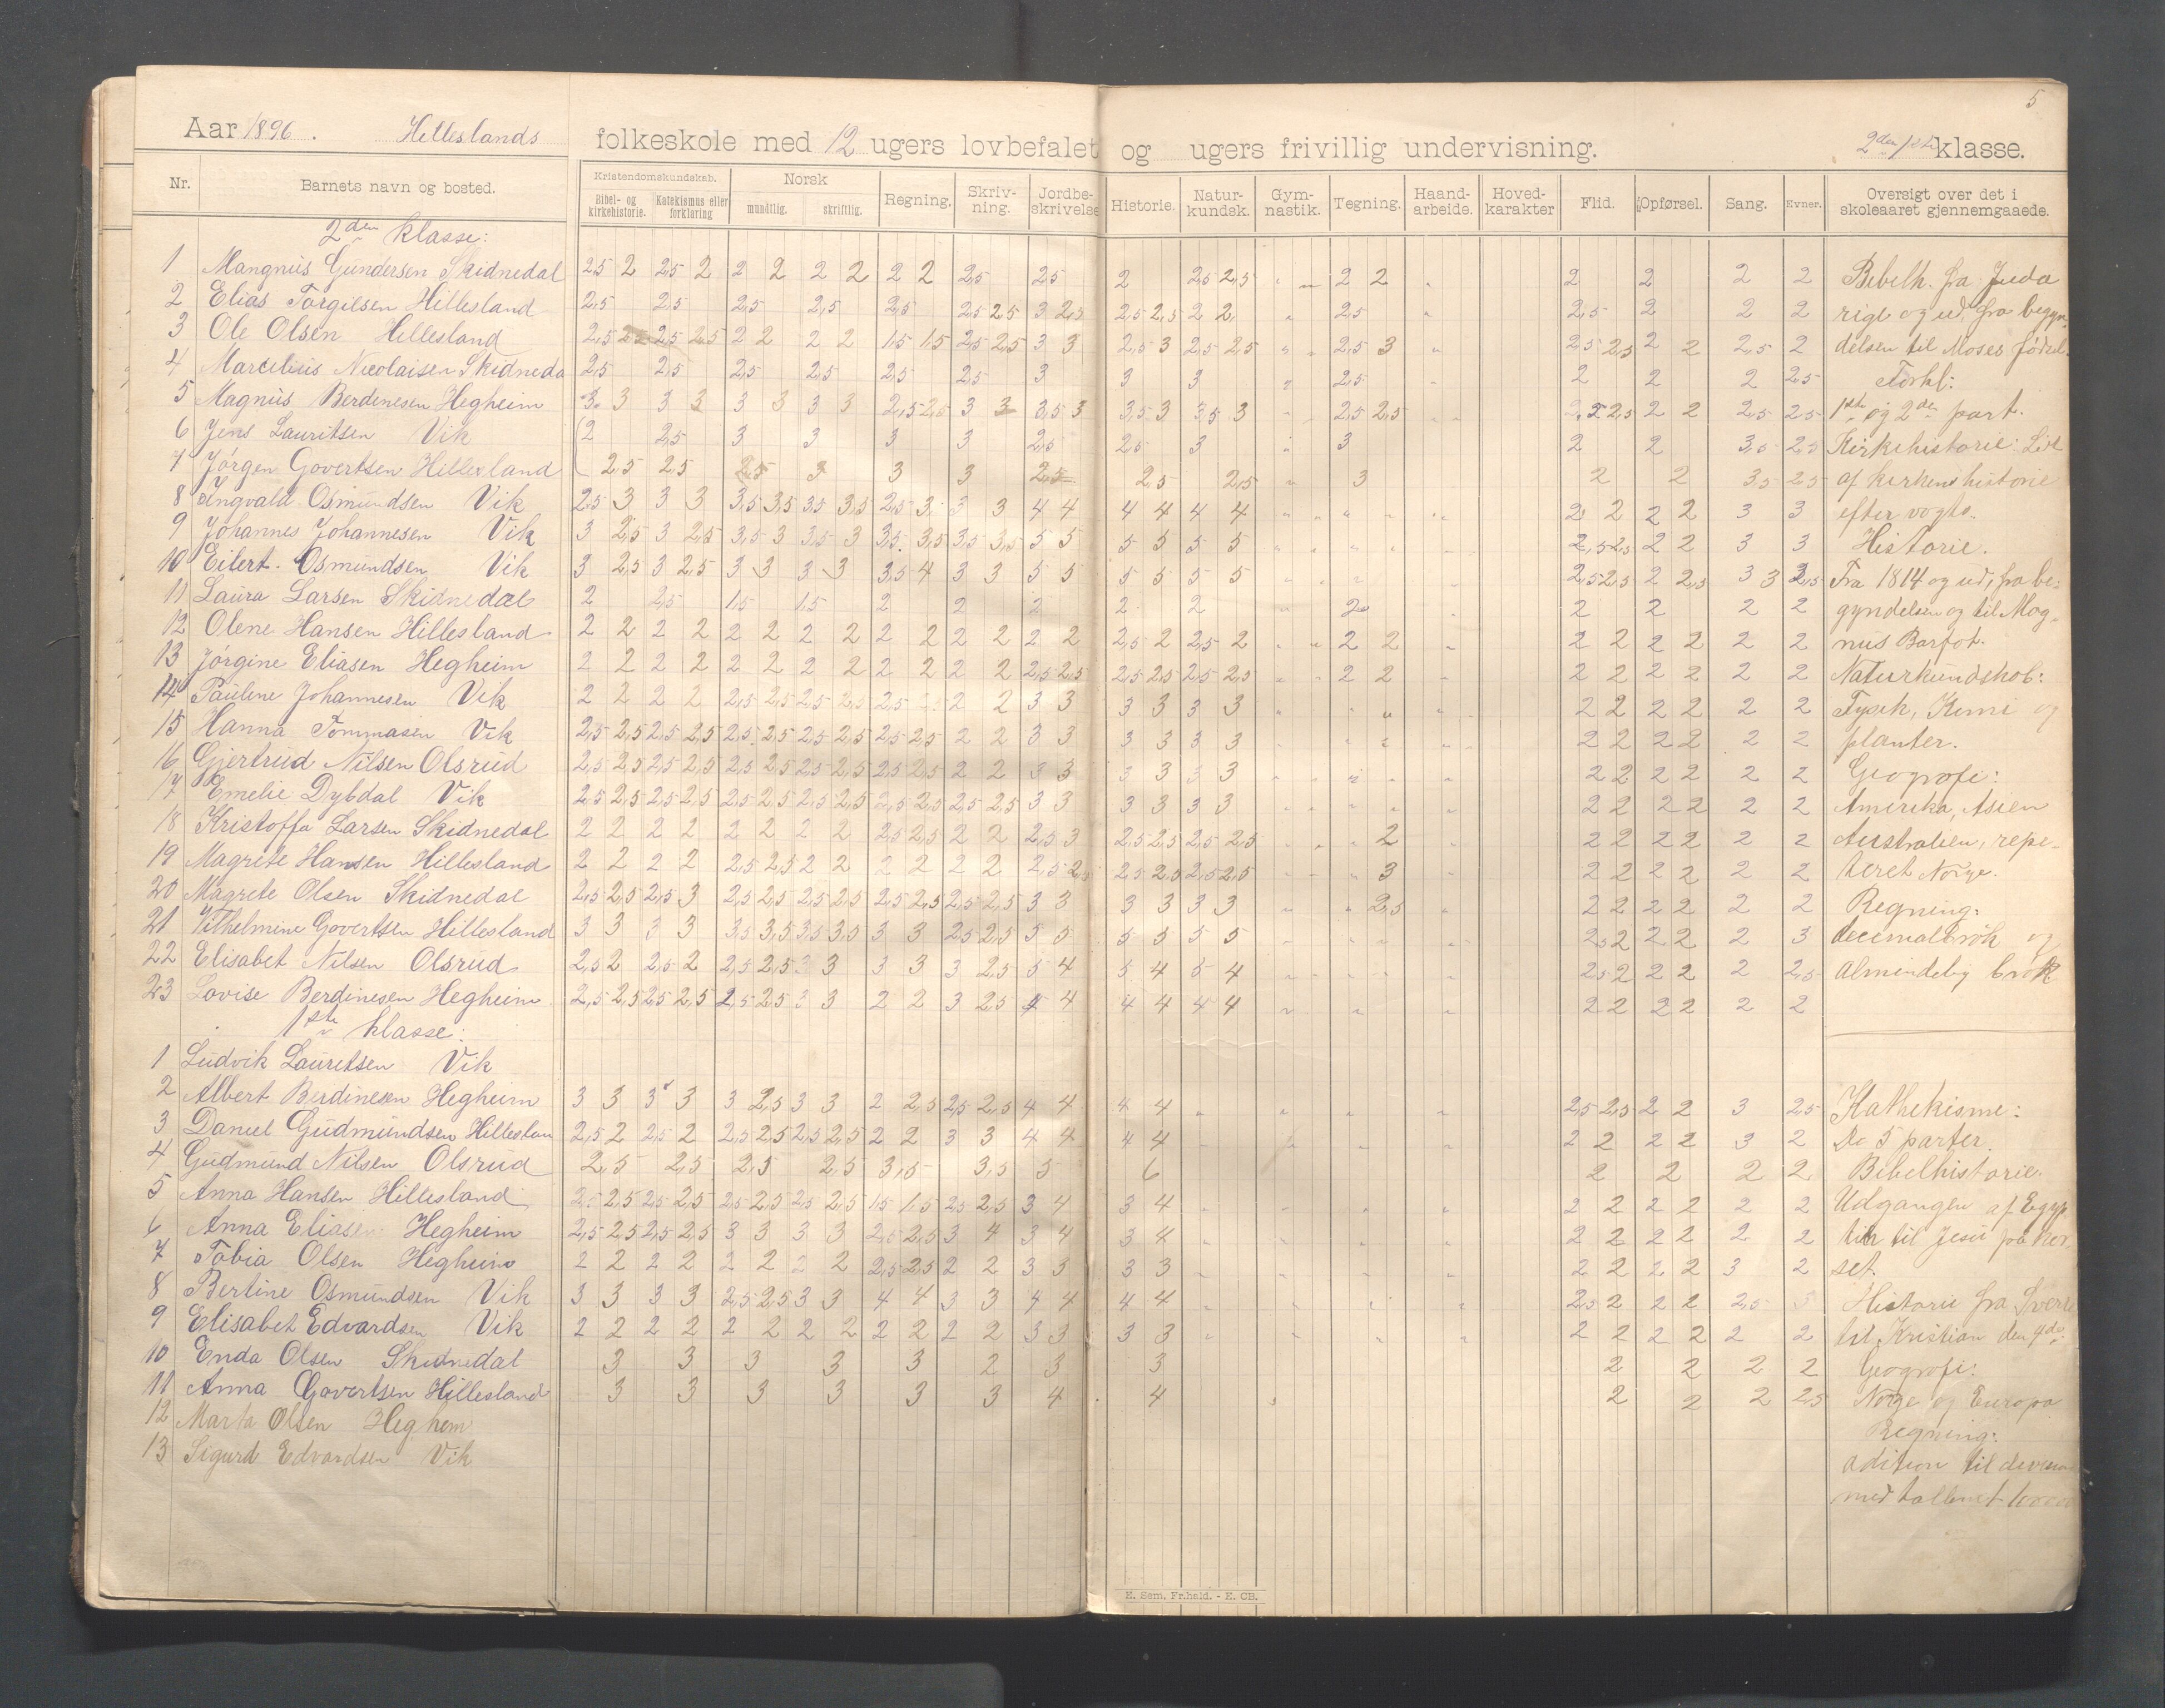 5
Aar 1896. Hilleslands folkeskole med 12 ugers lovbefalet og ugers frivillig undervisning. 2den/1ste klasse.
Nr. Barnets navn og bosted. Kristendomskundskab. Bibel- og kirkehistorie. Katekismus eller forklaring Norsk mundtlig. skriftlig. Regning. Skrivning. Jordbeskrivelse Historie. Naturkundsk. Gymnastik. Tegning. Haandarbeide. Hovedkarakter Flid. Opførsel. Sang. Evner. Oversigt over det i skoleaaret gjennemgaaede.
2den klasse:
1 Mangnus Gundersen Skidnedal 2,5 2 2,5 2 2 2 2 2 2 2 2,5 2,5 2 2,5 2,5 " " 2 2 " 2 2 2 2 Bibelh. fra Juda
2 Elias Torgilsen Hillesland 2,5 2,5 2,5 2,5 2,5 2,5 2,5 3 2,5 2,5 2,5 2 2 " 2,5 " 2,5 2 2 2 rige og ud, fra begyn-
3 Ole Olsen Hillesland 2,5 2,5 2,5 2,5 2 2 2 2 1,5 1,5 2,5 2,5 3 3 2,5 3 2,5 2,5 " " 2,5 3 " 2,5 2,5 2 2 2,5 2 delsen til Moses fødsel.
4 Marcelius Nicolaisen Skidneda 2,5 2,5 2,5 2,5 2,5 2,5 3 3 3 " 2,5 2 2 2 2,5 Forkl:
5 Magnus Berdinesen Hegheim 3 3 3 3 3 3 3 3 2,5 2,5 3 3 3,5 3 3,5 3 3,5 3 " 2,5 2,5 " 2,5 2,5 2 2 2,5 2,5 1ste og 2den part.
6 Jens Lauritsen Vik 2 2,5 3 3 3 3 2,5 2,5 3 " 3 2 2 3,5 2,5 Kirkehistorie: Lidt
7 Jørgen Govertsen Hillesland 2,5 2,5 2,5 3 3 3 2,5 2,5 2,5 " 3 2 2 3,5 2,5 af kirkens historie
8 Ingvald Osmundsen Vik 2,5 3 3 3 3,5 3,5 3,5 3,5 2,5 3 3 3 4 4 4 4 4 4 " " " " 2 2 2 2 3 3 efter vogts.
9 Johannes Johannesen Vik 3 2,5 3 2,5 3,5 3 3,5 3 3,5 3,5 3,5 3,5 5 5 5 5 5 5 " " " " 2,5 2,5 2 2 3 3 Historie.
10 Eilert Osmundsen Vik 3 2,5 3 2,5 3 3 3 3 3,5 4 3 3 5 5 5 5 5 5 " " " 2,5 2,5 2 2,5 3 3 2,5 Fra 1814 og ud, fra be-
11 Laura Larsen Skidnedal 2 2,5 1,5 1,5 2 2 2 2 2 " 2 2 2 2 2 gyndelsen og til Mag-
12 Olene Hansen Hillesland 2 2 2 2 2 2 2 2 2 2 2 2 2 2 2,5 2 2,5 2 " " 2 2 " 2 2 2 2 2 2 nus Barfot.
13 Jørgine Eliasen Hegheim 2 2 2 2 2 2 2 2 2 2 2 2 2,5 2,5 2,5 2,5 2,5 2,5 " " 2 2 " 2 2 2 2 2 2 Naturkundskab:
14 Pauline Johannesen Vik 2 2 2 2 2,5 2,5 2,5 2,5 2,5 2 2 3 3 3 3 3 3 " " " " 2 2 2 2 2 2 Fysik, Kemi og
15 Hanna Tommasen Vik 2,5 2,5 2,5 2,5 2,5 2,5 2,5 2,5 2,5 2,5 2 2 3 3 3 3 3 3 " " " " 2 2 2 2 2 2 planter.
16 Gjertrud Nilsen Olsrud 2,5 2,5 2,5 2,5 2,5 2,5 2,5 2,5 2,5 2,5 2 2 3 3 3 3 3 3 " " " " 2 2 2 2 2 2 Geografi:
17 Emelie Dybdal Vik 2,5 2,5 2,5 2,5 2,5 2,5 2,5 2,5 2,5 2,5 2,5 2,5 3 3 3 3 3 3 " " " " 2 2 2 2 2 2 Amerika, Asien
18 Kristoffa Larsen Skidnedal 2 2 2 2 2 2 2 2 2,5 2,5 2 2 2,5 3 2,5 2,5 2,5 2,5 " " " 2 " 2 2 2 2 2 2 Australien, repe-
19 Magrete Hansen Hillesland 2 2 2 2 2,5 2,5 2 2 2 2 2 2 2,5 2,5 2,5 2,5 2,5 2,5 " " " 3 " 2 2 2 2 2 2 teret Norge.
20 Magrete Olsen Skidnedal 2,5 2,5 2,5 3 2,5 2,5 2,5 2,5 2,5 2,5 2,5 2,5 3 3 3 3 3 3 " " 2,5 " 2 2 2 2 2 2 Regning:
21 Vilhelmine Govertsen Hillesland 3 3 3 3 3,5 3,5 3,5 3,5 3 3 2,5 2,5 5 5 5 5 5 5 " " " " 2,5 2 2 2 2 3 decimalbrøk og
22 Elisabet Nilsen Olsrud 2,5 2 2,5 2 2,5 2,5 3 3 3 3 3 2,5 5 4 5 4 5 4 " " " " 2,5 2 2 2 2 2,5 almindelig brøk
23 Lovise Berdinesen Hegheim 2,5 2,5 2,5 2,5 2,5 2,5 3 3 2 2 3 2,5 4 4 4 4 4 4 " " " 2 2 2 2 2 2
1ste klasse:
1 Ludvik Lauretsen Vik
2 Albert Berdinesen Hegheim 3 3 3 3 3 2,5 3 3 2 2,5 2,5 2,5 4 4 4 4 " " " " 2,5 2,5 2 2 3 2,5 Kathekisme:
3 Daniel Gudmundsen Hilleslan 2,5 2 2,5 2 2,5 2,5 2,5 2,5 2 2 3 3 4 4 4 4 " " " " 2 2 2 2 3 2 De 5 parter.
4 Gudmund Nilsen Olsrud 2,5 2,5 2,5 2,5 3,5 3,5 5 6 2 2 2 2 Bibelhistorie.
5 Anna Hansen Hillesland 2,5 2,5 2,5 2,5 2,5 2,5 2,5 2,5 1,5 1,5 2,5 2,5 3 4 3 4 " " " " 2 2 2 2 2 2 Udgangen af Egyp
6 Anna Eliasen Hegheim 2,5 2,5 2,5 2,5 3 3 3 3 2,5 2,5 3 4 3 4 3 4 " " " " 2 2 2 2 2 2 ten til Jesu på kor-
7 Tobia Olsen Hegheim 2 2 2 2 2 2 2 2 2,5 2,5 2 2 3 3 3 3 " " " " 2 2 2 2 3 2 set.
8 Bertine Osmundsen Vik 3 3 3 3 2,5 2,5 3 3 4 4 3 3 4 4 4 4 " " " " 2,5 2 2 2 2,5 Historie fra Sverre
9 Elisabet Edvardsen Vik 2 2 2 2 2 2 2 2 2 2 2 2 3 3 3 3 " " " " 2 2 2 2 2 2 til Kristian den 4de.
10 Enda Olsen Skidnedal 3 3 3 3 3 2 3 3 2 2 2 2 Geografi:
11 Anna Govertsen Hillesland 3 3 3 3 3 3 4 4 " 2 2 2 2,5 Norge og Europa
12 Marta Olsen Heghem Regning:
13 Sigurd Edvardsen Vik adition til
med tallene
E. Sem, Fr.hald. - E. CB.